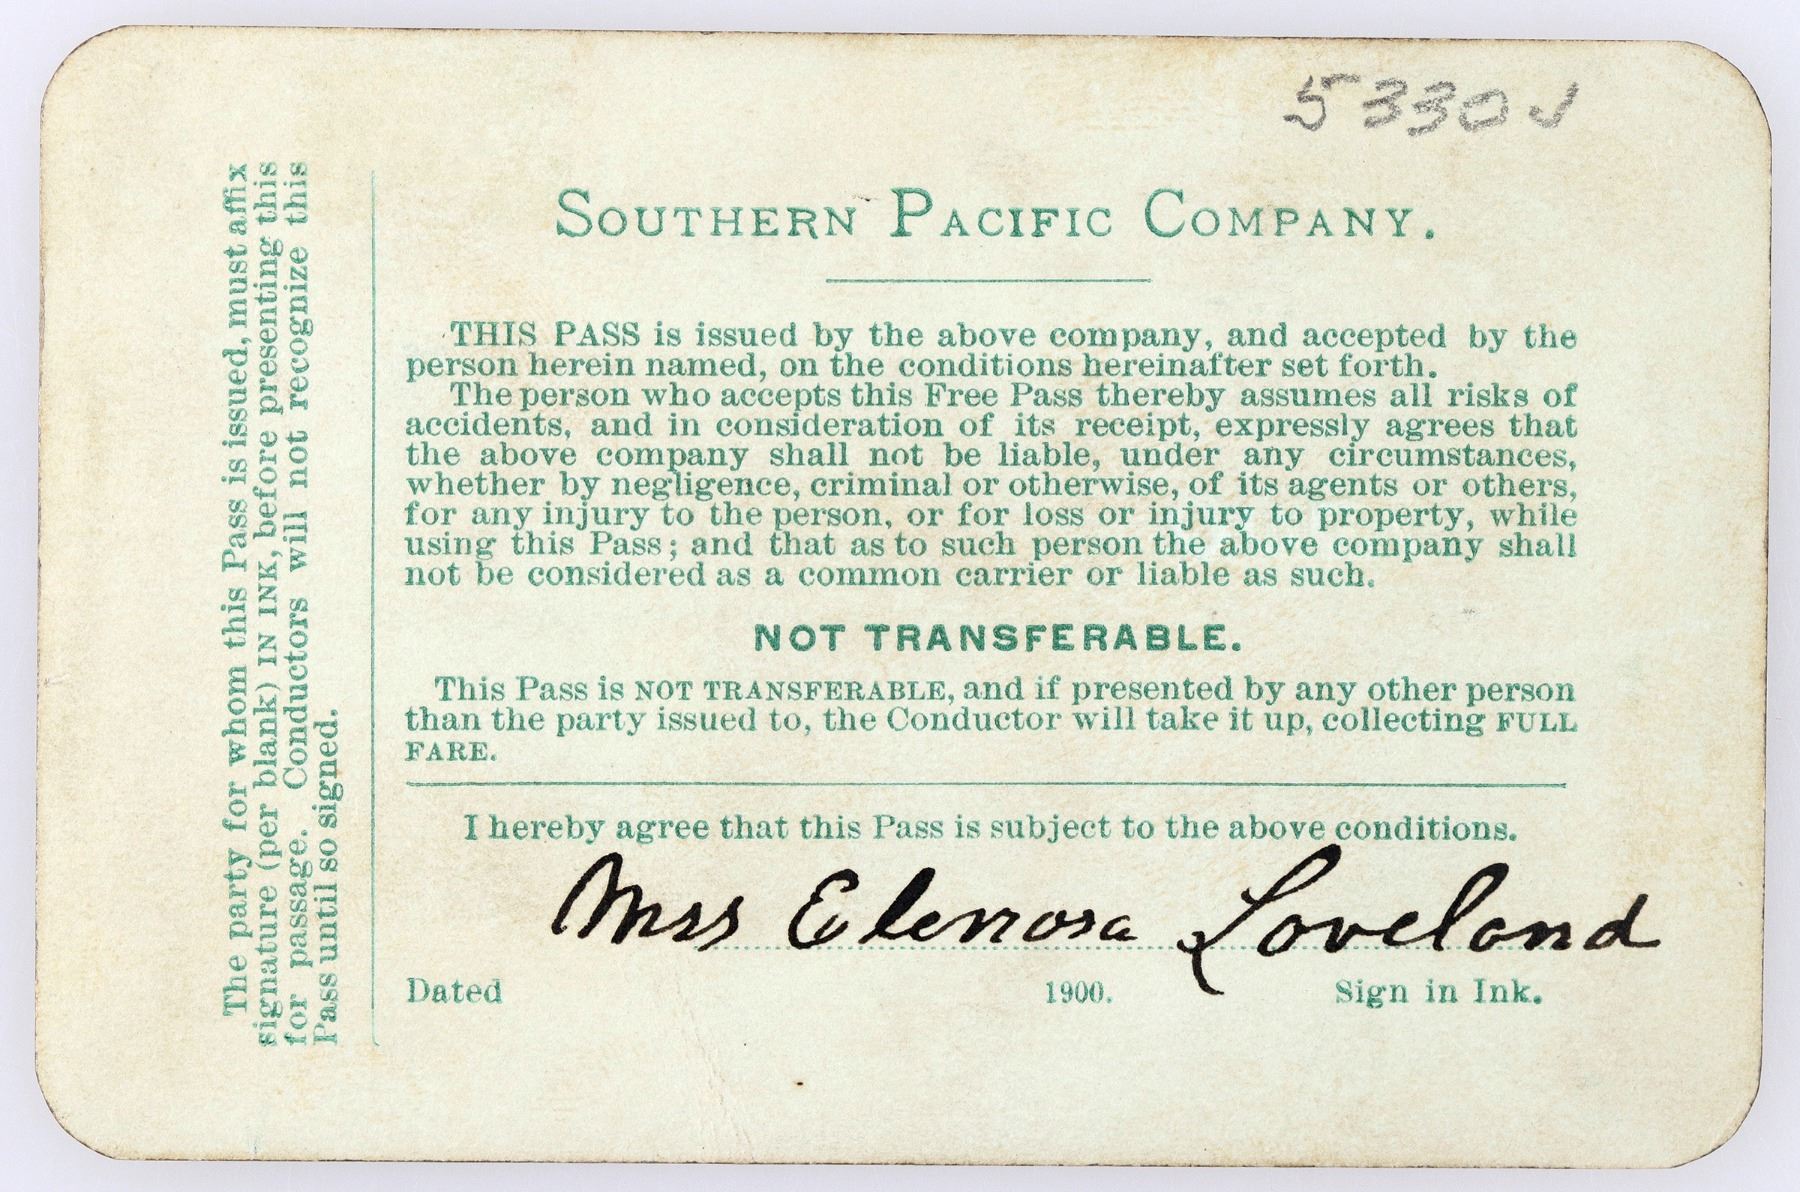 5330 ✓
SOUTHERN PACIFIC COMPANY.
THIS PASS is issued by the above company, and accepted by the
person herein named, on the conditions hereinafter set forth.
The person who accepts this Free Pass thereby assumes all risks of
accidents, and in consideration of its receipt, expressly agrees that
the above company shall not be liable, under any circumstances,
whether by negligence, criminal or otherwise, of its agents or others,
for any injury to the person, or for loss or injury to property, while
using this Pass; and that as to such person the above company shall
not be considered as a common carrier or liable as such.
NOT TRANSFERABLE.
This Pass is NOT TRANSFERABLE, and if presented by any other person
than the party issued to, the Conductor will take it up, collecting FULL
FARE.
I hereby agree that this Pass is subject to the above conditions.
Mrs Loveland
Dated 1900. Sign in Ink.
The party for whom this Pass is issued, must affix
signature (per blank) IN INK, before presenting this
for passage. Conductors will not recognize this
Pass until so signed.